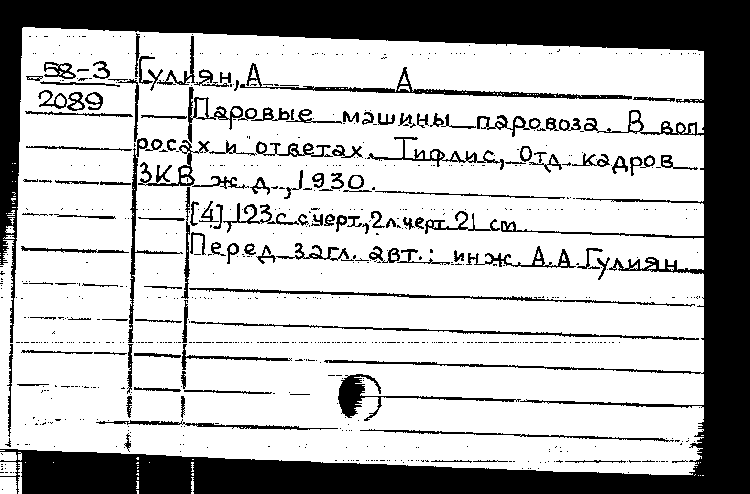 58-3 Гулиян, А А
2089 Паровые машины паровоза. В воп-
росах и ответах. Тифлис, Отд. кадров
ЗКВ ж. д., 1930.
[4], 123 с. с черт., 2 л. черт. 21 cm
Перед загл. авт.: инж. А.А. Гулиян